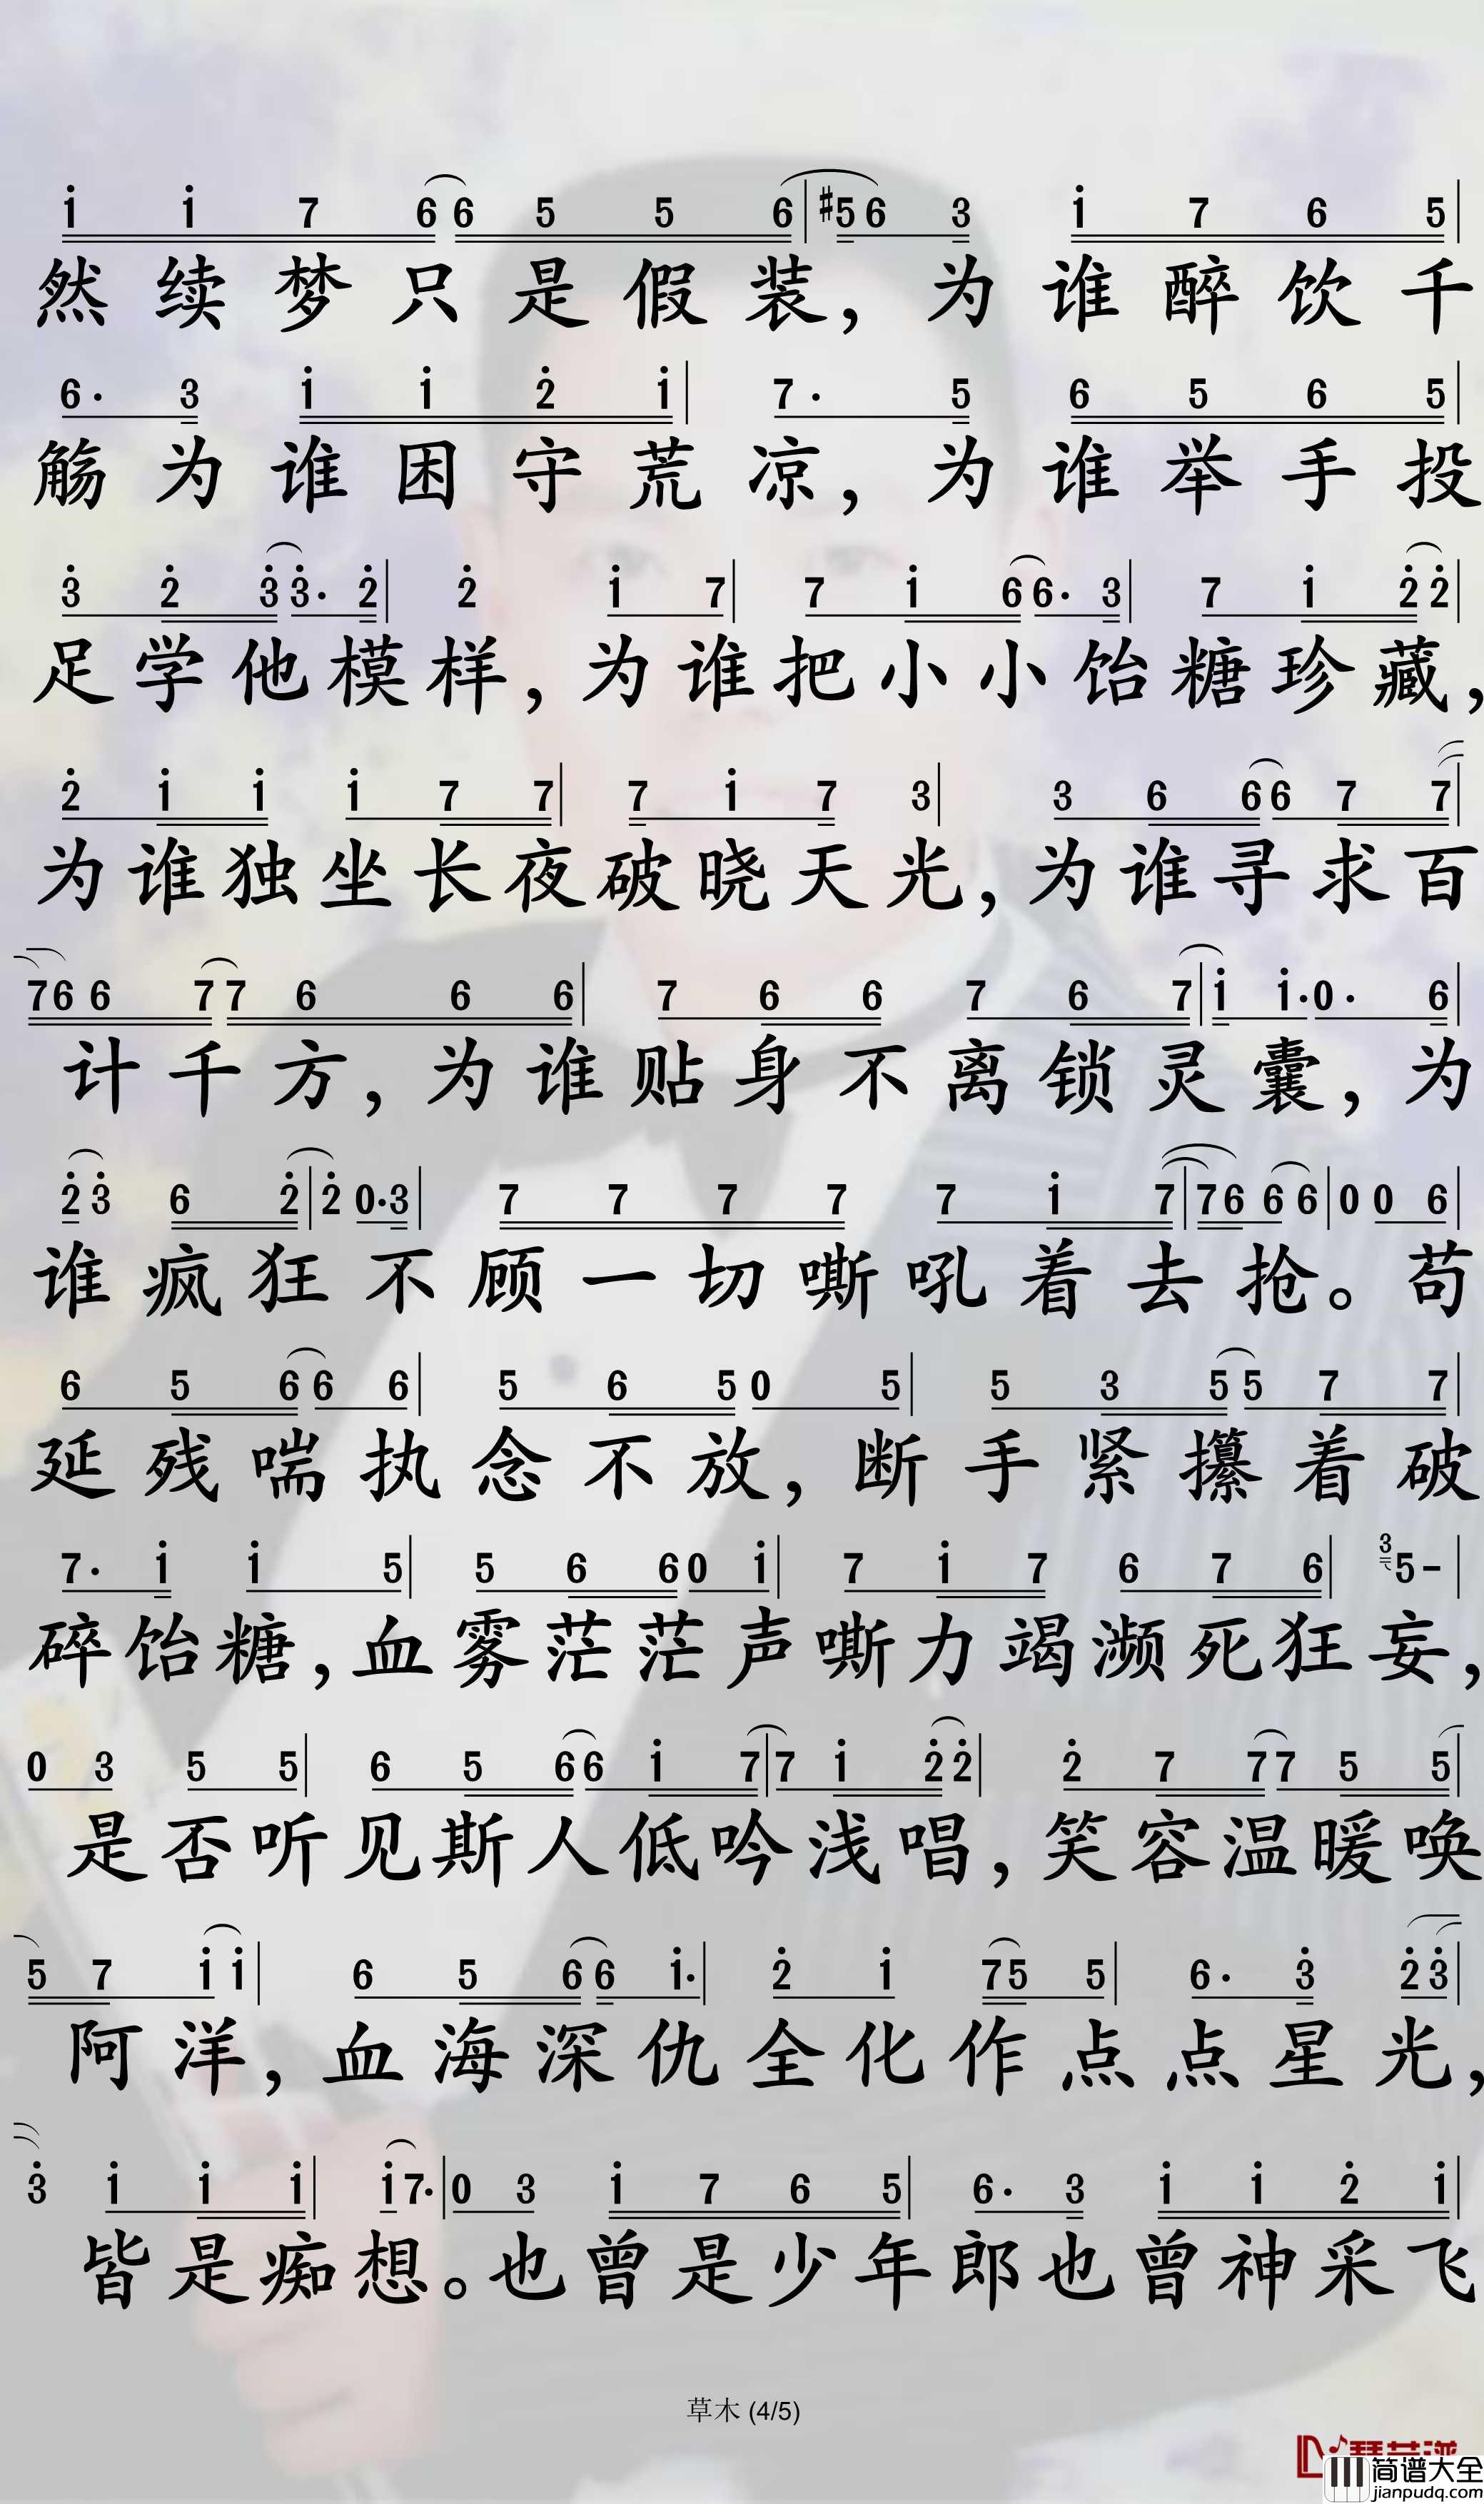 i i 7 6 6 5 5 6 | #5 6 3 i 7 6 5 |
然续梦只是假装，为谁醉饮千
6· 3 i i 2̇ i | 7· 5 6 5 6 5 |
觞为谁困守荒凉，为谁举手投
3̇ 2̇ 3̇ 3̇· 2̇ | 2̇ i 7 | 7 i 6 6· 3 | 7 i 2̇ 2̇ |
足学他模样，为谁把小小饴糖珍藏，
2̇ i i i 7 7 | 7 i 7 3 | 3 6 6 6 7 7 |
为谁独坐长夜破晓天光，为谁寻求百
7 6 6 7 7 6 6 6 | 7 6 6 7 6 7 | i i· 0· 6 |
计千方，为谁贴身不离锁灵囊，为
2̇ 3̇ 6 2̇ | 2̇ 0· 3̇ | 7 7 7 7 7 i 7 | 7 6 6 6 | 0 0 6 |
谁疯狂不顾一切嘶吼着去抢。苟
6 5 6 6 6 | 5 6 5 0 5 | 5 3 5 5 7 7 |
延残喘执念不放，断手紧攥着破
7· i i 5 | 5 6 6 0 i | 7 i 7 6 7 6 | 3 5 - |
碎饴糖，血雾茫茫声嘶力竭濒死狂妄，
0 3 5 5 | 6 5 6 6 i 7 | 7 i 2̇ 2̇ | 2̇ 7 7 7 5 5 |
是否听见斯人低吟浅唱，笑容温暖唤
5 7 i i | 6 5 6 6 i· | 2̇ i 7 5 5 | 6· 3̇ 2̇ 3̇ |
阿洋，血海深仇全化作点点星光，
3̇ i i i | i 7· | 0 3 i 7 6 5 | 6· 3 i i 2̇ i |
皆是痴想。也曾是少年郎也曾神采飞
草木 (4/5)
简谱大全
jianpudq.com